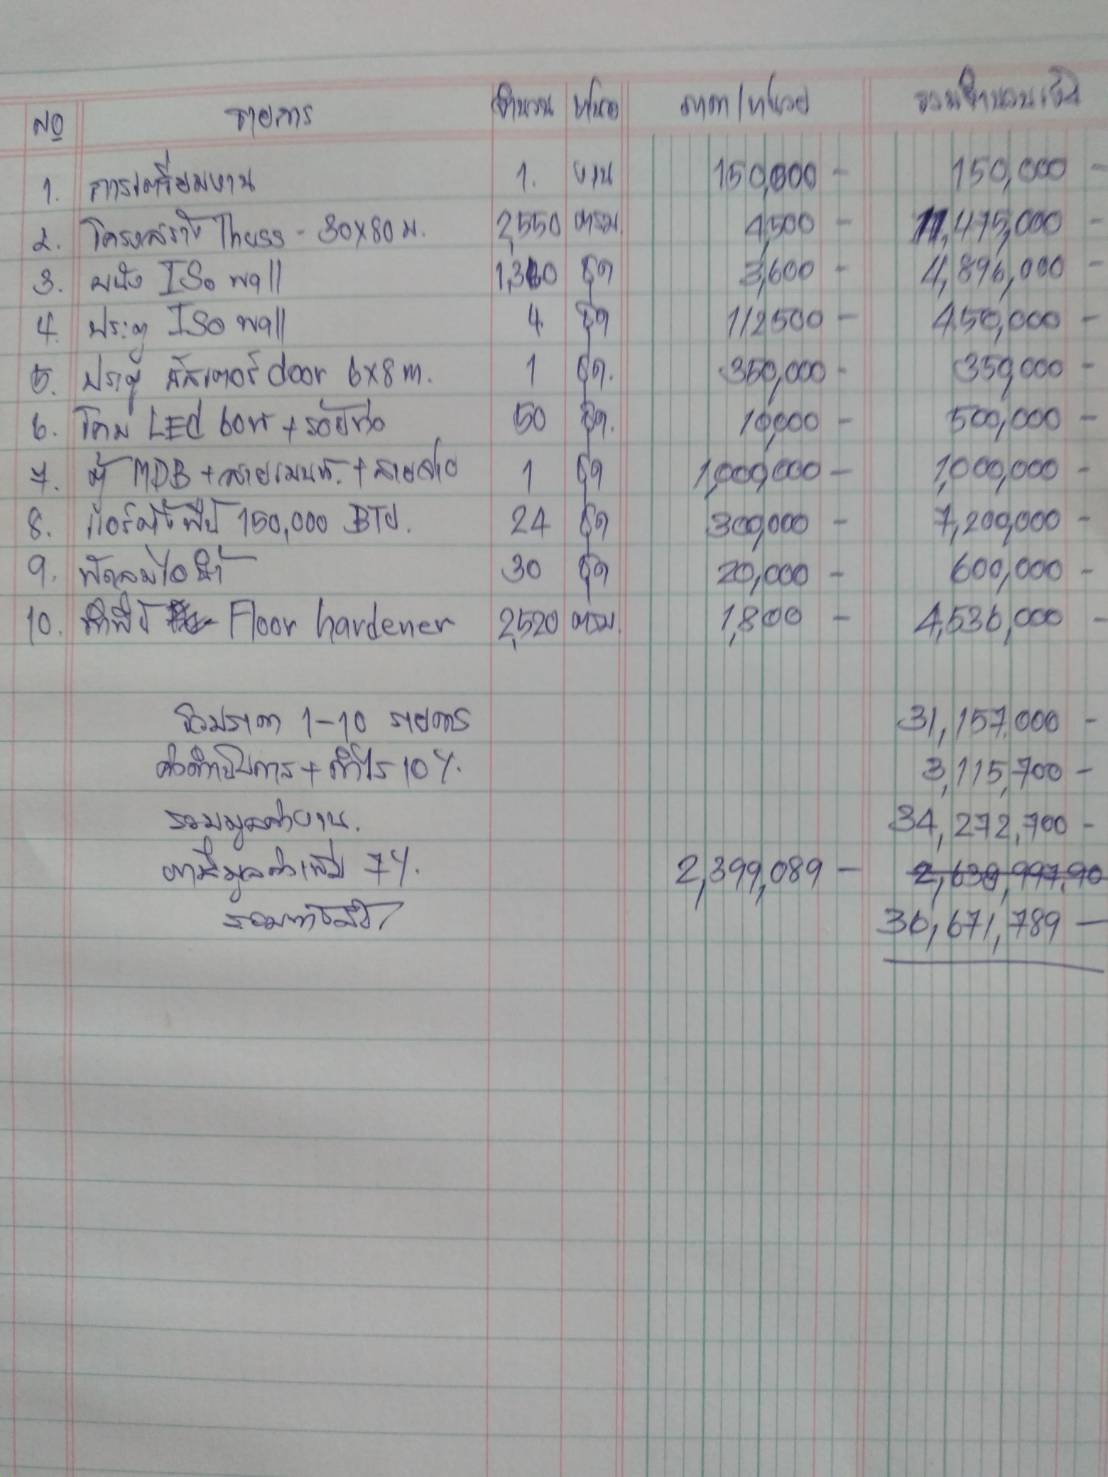 No รายการ จำนวน หน่วย ราคา/หน่วย รวมจำนวนเงิน
1. การเตรียมงาน 1. งาน 150,000 - 150,000 -
2. โครงสร้าง Thuss - 30x80 ม. 2,550 ตรม. 4,500 - 11,475,000 -
3. ผนัง ISO wall 1,360 ชุด 3,600 - 4,896,000 -
4. ประตู ISO wall 4 ชุด 112500 - 450,000 -
5. ประตู door 6x8 m. 1 ชุด. 350,000 - 350,000 -
6. โคม LED 60W + ร้อยท่อ 50 ชุด. 10,000 - 500,000 -
7. ตู้ MDB + สายเมนท์ + สายส่ง 1 ชุด 1,000,000 - 1,000,000 -
8. แอร์ตั้งพื้น 150,000 BTU. 24 ชุด 300,000 - 7,200,000 -
9. พัดลมไอน้ำ 30 ชุด 20,000 - 600,000 -
10. ทำพื้น Floor hardener 2,520 ตรม. 1,800 - 4,536,000 -
รวมราคา 1-10 รายการ 31,157,000 -
ค่าดำเนินการ + กำไร 10%. 3,115,700 -
รวมมูลค่างาน. 34,272,700 -
ภาษีมูลค่าเพิ่ม 7%. 2,399,089 - 2,638,997.90
รวมทั้งสิ้น 36,671,789 -